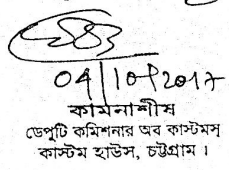 04/10/2017
কামনাশীষ
ডেপুটি কমিশনার অব কাস্টমস্
কাস্টম হাউস, চট্টগ্রাম ।